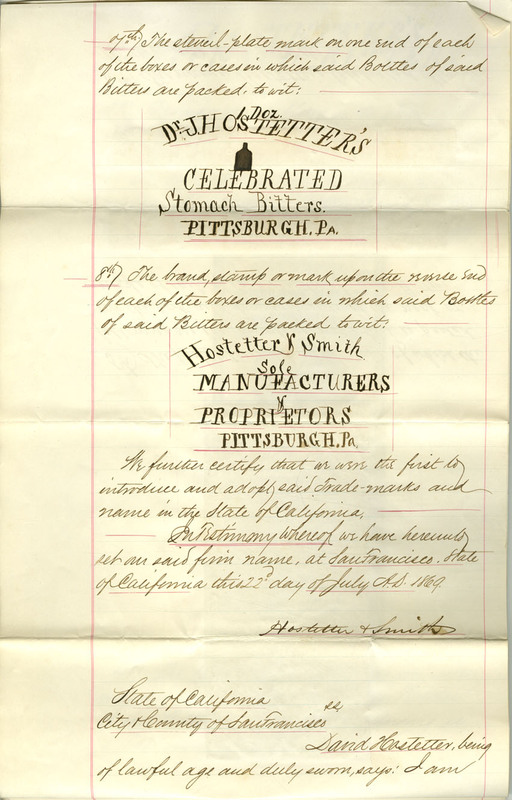 7th) The stencil-plate mark on one end of each
of the boxes or cases in which said Bottles of said
Bitters are packed, to wit:
1 Doz.
Dr. J. HOSTETTER'S
CELEBRATED
Stomach Bitters.
PITTSBURGH, PA.
8th) The brand, stamp or mark upon the reverse end
of each of the boxes or cases in which said Bottles
of said Bitters are packed to wit:
Hostetter & Smith
Sole
MANUFACTURERS
&
PROPRIETORS
PITTSBURGH, Pa.
We further certify that we were the first to
introduce and adopt said Trade-marks and
name in the State of California.
In Testimony Whereof we have hereunto
set our said firm name, at San Francisco, State
of California this 22d day of July A.D. 1869.
Hostetter & Smith
State of California
City & County of San Francisco ss.
David Hostetter, being
of lawful age and duly sworn, says: I am